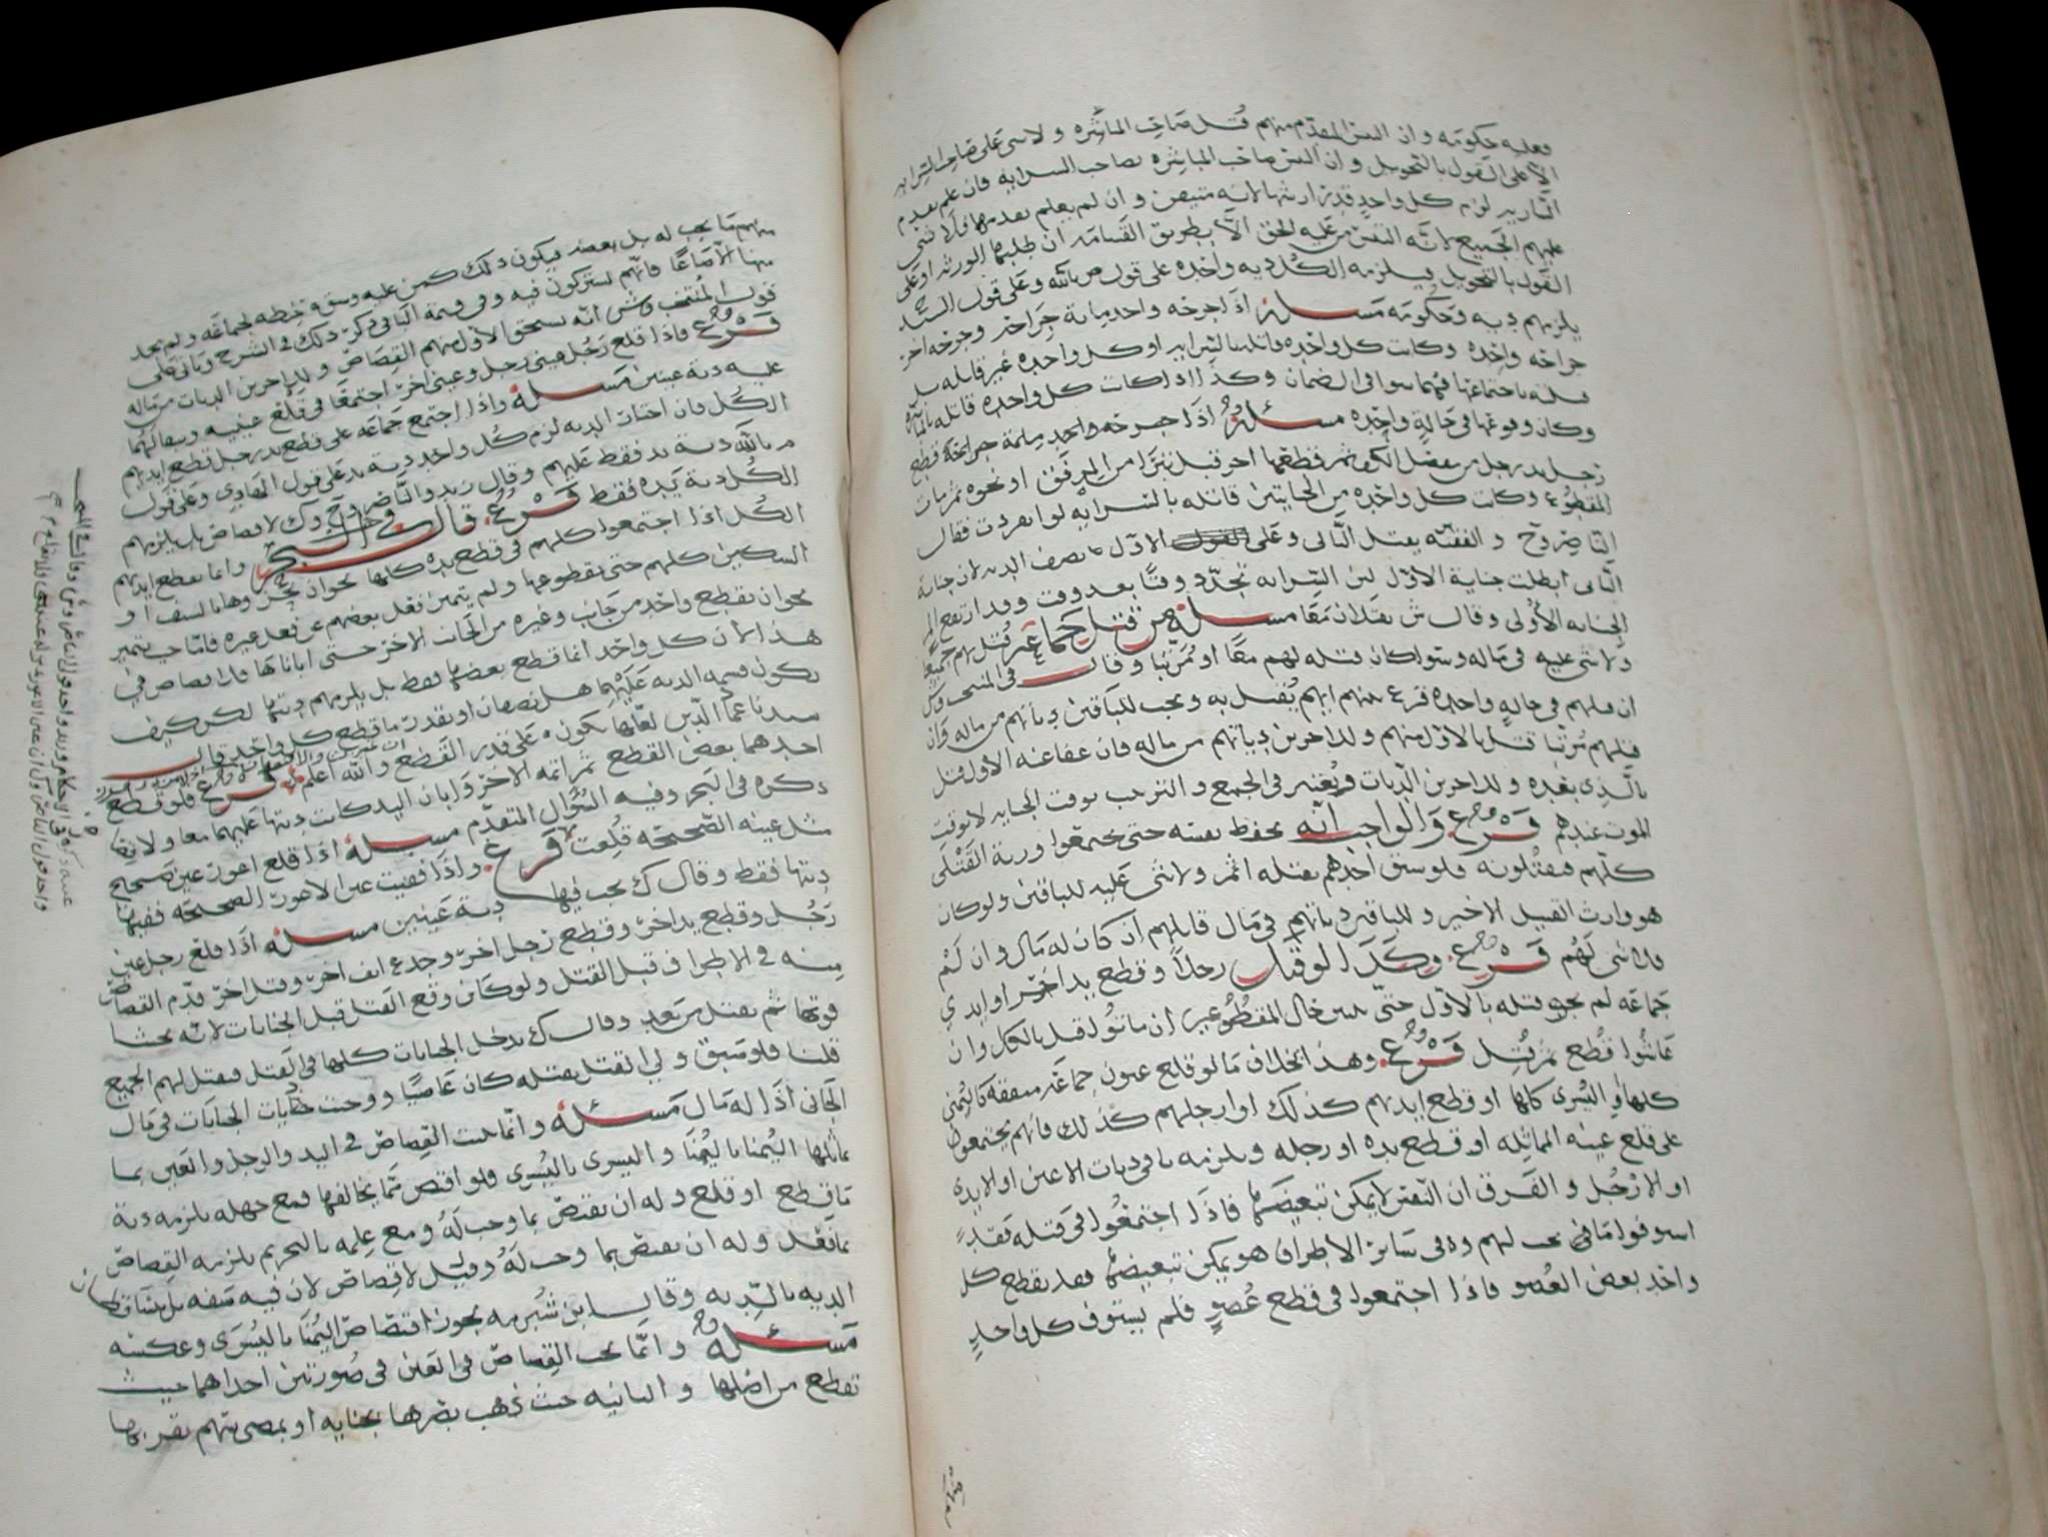 فعليه حكومه وان التبس المتقدم منهم قتل صاحب المباشره ولا شي على صاحب السرايه
الا على القول بالتحويل وان التبس صاحب المباشره بصاحب السرايه فان علم تقدم
لزم كل واحد قدر ارشها لانه متيقن وان لم يعلم تقدمها فلا شي
عليهم الجميع لانه التبس من عليه الحق الا بطريق القسامه ان طلبها الورثه او على
القول بالتحويل فيلزمه الكل ديه واحده على قول م بالله وعلى قول السيد
يلزمهم ديه وحكومه مسئله اذا جرحه واحد مايه جراحه وجرحه اخر
جراحه واحده وكانت كل واحده قاتله بالسرايه او كل واحده غير قاتله بل
قتلت باجتماعها فهما سوا في الضمان وكذا اذا كانت كل واحده قاتله بالمباشره
وكان وقوعها في حالة واحده مسئله اذا جرحه واحد
رجل يد رجل من مفصل الكف ثم قطعها اخر قبل تبرا من المرفق او نحوه ثم مات
المقطوع وكانت كل واحده من الجنايتين قاتله بالسرايه لو انفردت فقال
الناصر وح والفقيه يقتل الثاني وعلى الاول نصف الديه لان جناية
الثاني ابطلت جناية الاول لان السرايه تجدد وقتا بعد وقت وقد ارتفع
الجنايه الاولى وقال ش يقتلان معا مسئله من قتل جماعه قتل بهم جميعا
ولا شي عليه في ماله وسوا كان قتله لهم معا او مرتبا وقال في المنتخب وش
ان قتلهم في حالة واحده قرع بينهم ايهم يقتل به ويجب للباقين دياتهم من ماله وان
قتلهم مرتبا قتل بالاول منهم وللاخرين دياتهم من ماله فان عفا عنه الاول قتل
بالذي بعده وللاخرين الديات ويعتبر في الجمع والترتيب بوقت الجنايه لا بوقت
الموت عندهم فرع والواجب انه يحفظ نفسه حتى يجتمعوا ورثة القتلى
كلهم فيقتلونه فلو سبق احدهم بقتله اثم ولا شي عليه للباقين ولو كان
هو وارث القتيل الاخير وللباقين دياتهم في مال قاتلهم ان كان له مال وان لم
فلا شي لهم فرع وكذا لو قتل رجلا وقطع يد اخر او ايدي
جماعه لم يجب قتله بالاول حتى يتبين حال المقطوعين ان ماتوا قتل بالكل وان
عاشوا قطع ثم قتل فرع وهذا بخلاف ما لو قلع عيون جماعه متفقه كاليمنى
كلها او اليسرى كلها او قطع ايديهم كذلك او ارجلهم كذلك فانهم يجتمعون
على قلع عينه المماثله او قطع يده او رجله ويلزمه باقي ديات الاعين او الايدي
او الارجل والفرق ان النفس لا يمكن تبعيضها فاذا اجتمعوا في قتله فقد
استوفوا ما يجب لهم وفي سائر الاطراف هو يمكن تبعيضها فقد يقطع كل
واحد بعض العضو فاذا اجتمعوا في قطع عضو فلم يستوف كل واحد
منهم ما يجب له بل بعضه فيكون ذلك كمن عليه وسق حنطه لجماعه ولم يجد
منها الا صاعا فانهم يشتركون فيه وفي قيمة الباقي ذكر ذلك في الشرح وياتي على
قول المنتخب وش انه يستحق الاول منهم القصاص وللاخرين الديات من ماله
فرع فاذا قلع رجل عيني رجل وعيني اخر اجتمعا في قلع عينيه ويبقا لهما
عليه دية عينين مسئله واذا اجتمع جماعه على قطع يد رجل قطع ايديهم
الكل فان اختار الديه لزم كل واحد دية يد على قول الهادي وعلى قول
م بالله دية يد فقط عليهم وقال زيد والناصر وح وك لا قصاص بل يلزمهم
الكل دية يده فقط فرع قال في البحر وانما يقطع ايديهم
الكل اذا اجتمعوا كلهم في قطع يده كلها نحو ان يجروها بالسيف او
السكين كلهم حتى يقطعوها ولم يتميز فعل بعضهم عن فعل غيره فاما حيث تميز
نحو ان يقطع واحد من جانب وغيره من الجانب الاخر حتى اباناها فلا قصاص في
هذا لان كل واحد انما قطع بعضها فقط بل يلزمهم ديتها لكن كيف
يكون قسمة الديه عليهما هل نصفان او بقدر ما قطع كل واحد قال
سيدنا عماد الدين لعلها يكون على قدر القطع والله اعلم فرع فلو قطع
احدهما بعض القطع ثم اتمه الاخر وابان اليد كانت ديتها عليهما معا
ذكره في البحر وفيه السؤال المتقدم مسئله اذا قلع اعور عين صحيح
مثل عينه الصحيحه قلعت فرع واذا فقيت عين الاعور الصحيحه ففيها
ديتها فقط وقال ك يجب فيها دية عينين مسئله اذا قلع رجل عين
رجل وقطع يد اخر وقطع رجل اخر وجدع انف اخر وقتل اخر قدم القصاص
منه في الاطراف قبل القتل ولو كان وقع القتل قبل الجنايات لانه يخشا
فوتها ثم يقتل من بعد وقال ك يدخل الجنايات كلها في القتل فيقتل لهم الجميع
قلنا فلو سبق ولي القتل بقتله كان عاصيا ووجبت ديات الجنايات في مال
الجاني اذا له مال مسئله وانما يثبت القصاص في اليد والرجل والعين بما
يماثلها اليمنا باليمنا واليسرى باليسرى فلو اقتص بما يخالفها فمع جهله يلزمه دية
ما قطع او قلع وله ان يقتص بما وجب له ومع علمه بالتحريم يلزمه القصاص
بما فعل وله ان يقتص بما وجب له وقيل لا قصاص لان فيه شبهه بل يتساقطان
الديه بالديه وقال ابن شبرمه يجوز اقتصاص اليمنا باليسرى وعكسه
مسئله وانما يجب القصاص في العين في صورتين احداهما حيث
تقطع من اصلها والثانيه حيث ذهب بصرها بجنايه او